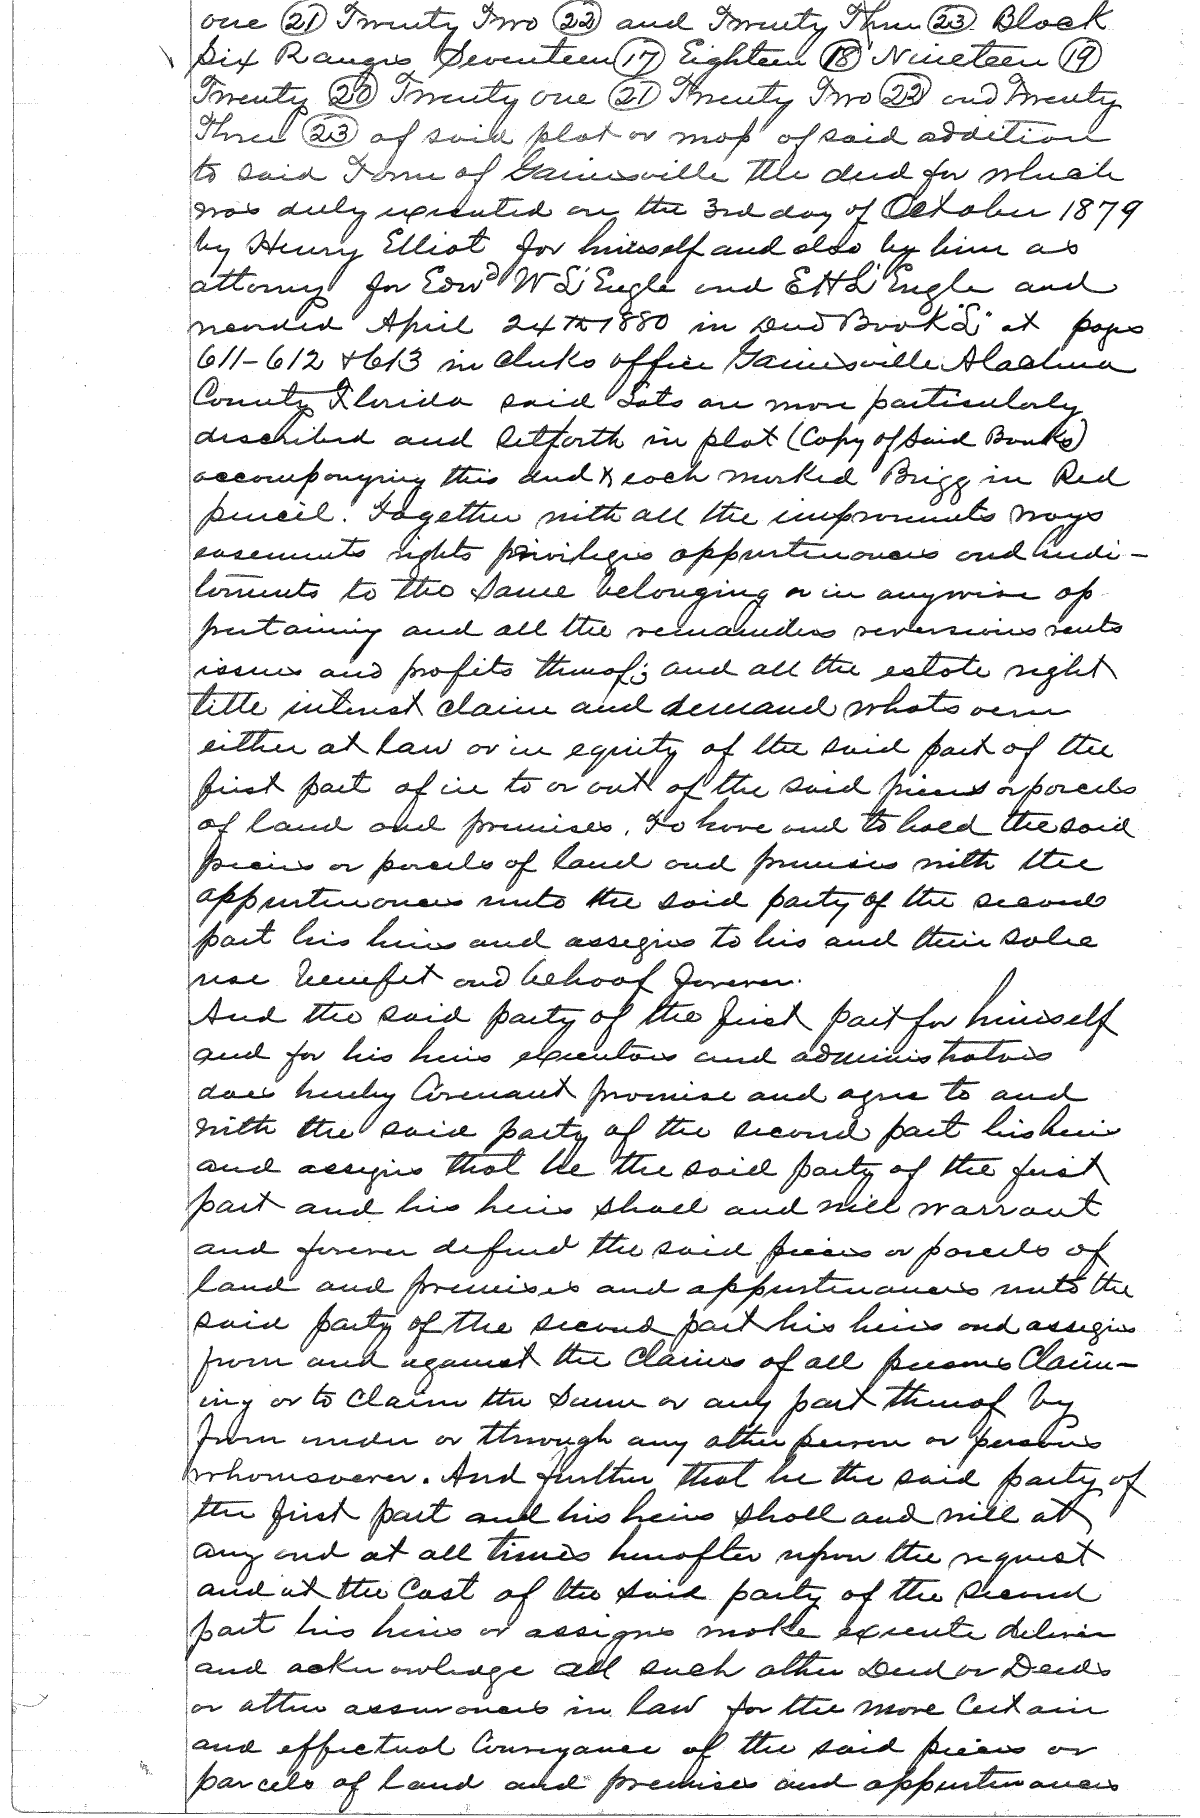 one (21) Twenty Two (22) and Twenty Three (23) Block
Six Ranges Seventeen (17) Eighteen (18) Nineteen (19)
Twenty (20) Twenty one (21) Twenty Two (22) and Twenty
Three (23) of said plat or map of said addition
to said Town of Gainesville the deed for which
was duly executed on the 3rd day of October 1879
by Henry Elliot for himself and also by him as
attorney for Edwd W L'Engle and E H L'Engle and
recorded April 24th 1880 in Deed Book "L" at pages
611-612 & 613 in Clerks office Gainesville Alachua
County Florida said Lots are more particularly
described and setforth in plat (Copy of said Books)
accompanying this deed & each marked Brigg in Red
pencil. Together with all the improvments ways
easements rights privileges appurtenances and herdi-
taments to the same belonging or in anywise ap
pertaining and all the remainders reversions rents
issues and profits thereof; and all the estate right
title interest claim and demand whatsoever
either at law or in equity of the said part of the
first part of in to or out of the said pieces or parcels
of land and premises. To have and to hold the said
pieces or parcels of land and premises with the
appurtenances unto the said party of the second
part his heirs and assigns to his and their sole
use benefit and behoof forever.
And the said party of the first part for himself
and for his heirs executors and administrators
does hereby Covenant promise and agree to and
with the said party of the second part his heirs
and assigns that he the said party of the first
part and his heirs shall and will warrant
and forever defend the said pieces or parcels of
land and premises and appurtenances unto the
said party of the second part his heirs and assigns
from and against the claims of all persons Claim-
ing or to Claim the Same or any part thereof by
from under or through any other person or persons
whomsoever. And further that he the said party of
the first part and his heirs shall and will at
any and at all times hereafter upon the request
and at the Cost of the said party of the second
part his heirs or assigns make execute deliver
and acknowledge all such other Deed or Deeds
or other assurances in law for the more Certain
and effectual Conveyance of the said pieces or
parcels of land and premises and appurtenances